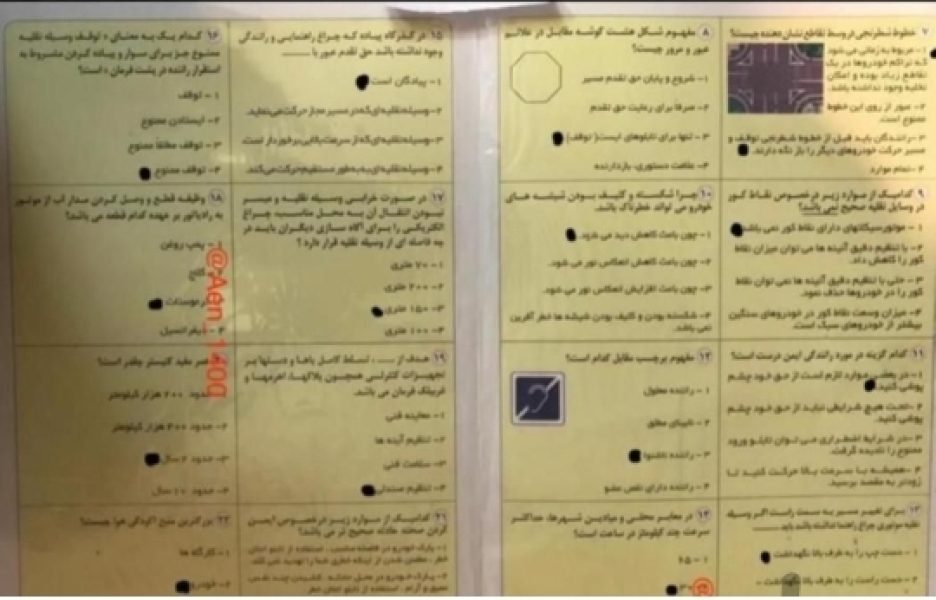 ۷ خطوط شطرنجی دروسط تقاطع نشان دهنده چیست؟
۱- مربوط به زمانی می شود
که تراکم خودروها در یک
تقاطع زیاد بوده و امکان
تخلیه وجود نداشته باشد.
۲- عبور از روی این خطوط
ممنوع است.
۳- رانندگان باید قبل از خطوط شطرنجی توقف و
مسیر حرکت خودروهای دیگر را باز نگه دارند.
۴- تمام موارد
۸ مفهوم شکل هشت گوشه مقابل در علائم
عبور و مرور چیست؟
۱- شروع و پایان حق تقدم مسیر
۲- صرفا برای رعایت حق تقدم
۳- تنها برای تابلوهای ایست( توقف)
۴- علامت دستوری، بازدارنده
۹ کدامیک از موارد زیر درخصوص نقاط کور
در وسایل نقلیه صحیح نمی باشد؟
۱- موتورسیکلتهای دارای نقاط کور نمی باشد
۲- با تنظیم دقیق آئینه ها می توان میزان نقاط
کور را کاهش داد.
۳- حتی با تنظیم دقیق آئینه ها نمی توان نقاط
کور را در خودروها حذف نمود.
۴- میزان وسعت نقاط کور در خودروهای سنگین
بیشتر از خودروهای سبک است.
۱۰ چرا شکسته و کثیف بودن شیشه های
خودرو می تواند خطرناک باشد.
۱- چون باعث کاهش دید می شود.
۲- چون باعث کاهش انعکاس نور می شود.
۳- چون باعث افزایش انعکاس نور می شود.
۴- شکسته بودن و کثیف بودن شیشه ها خطر آفرین
نمی باشد.
۱۱ کدام گزینه در مورد رانندگی ایمن درست است؟
۱- در بعضی موارد لازم است از حق خود چشم
پوشی کنید.
۲- تحت هیچ شرایطی نباید از حق خود چشم
پوشی کنید.
۳- در شرایط اضطراری می توان تابلو ورود
ممنوع را نادیده گرفت.
۴- همیشه با سرعت بالا حرکت کنید تا
زودتر به مقصد برسید.
۱۲ مفهوم برچسب مقابل کدام است؟
۱- راننده معلول
۲- نابینای مطلق
۳- راننده ناشنوا
۴- راننده دارای نقص عضو
۱۳ برای تغییر مسیر به سمت راست اگر وسیله
نقلیه موتوری چراغ راهنما نداشته باشد باید
۱- دست چپ را به طرف بالا نگهداشت
۲- دست راست را به طرف بالا نگهداشت
۱۴ در معابر محلی و میادین شهرها، حداکثر
سرعت چند کیلومتر در ساعت است؟
۱- ۶۵
۳۰
۱۵ در گذرگاه پیاده که چراغ راهنمایی و رانندگی
وجود نداشته باشد حق تقدم عبور با
۱- پیادگان است
۲- وسیله نقلیه ای که در مسیر مجاز حرکت می نماید.
۳- وسیله نقلیه ای که از سرعت بالایی برخوردار است.
۴- وسیله نقلیه ای به طور مستقیم حرکت می کند.
۱۶ کدام یک به معنای « توقف وسیله نقلیه
ممنوع جز برای سوار و پیاده کردن مشروط به
استقرار راننده در پشت فرمان » است؟
۱- توقف
۲- ایستادن ممنوع
۳- توقف مطلقا ممنوع
۴- توقف ممنوع
۱۷ در صورت خرابی وسیله نقلیه و میسر
نبودن انتقال آن به محل مناسب، چراغ
الکتریکی را برای آگاه سازی دیگران باید در
چه فاصله ای از وسیله نقلیه قرار دارد ؟
۱- ۷۰ متری
۲- ۲۰۰ متری
۳- ۱۵۰ متری
۴- ۱۰۰ متری
۱۸ وظیفه قطع و وصل کردن مدار آب از موتور
به رادیاتور بر عهده کدام قطعه می باشد؟
۱- پمپ روغن
ترموستات
۴- دیفرانسیل
۱۹ هدف از ..... ، تسلط کامل پاها و دستها بر
تجهیزات کنترلی همچون پدالها، اهرمها و
غربیلک فرمان می باشد.
۱- معاینه فنی
۲- تنظیم آینه ها
۳- سلامت فنی
۴- تنظیم صندلی
عمر مفید کپسول چقدر است؟
حدود ۲۰۰ هزار کیلومتر
۲- حدود ۴۰۰ هزار کیلومتر
۳- حدود ۲ سال
۴- حدود ۱۰ سال
۲۱ کدامیک از موارد زیر درخصوص ایمن
کردن صحنه حادثه صحیح تر می باشد؟
۲۲ بزرگترین منبع آلودگی هوا چیست؟
۱- کارگاه ها
۲- خودرو
@Aen_1400